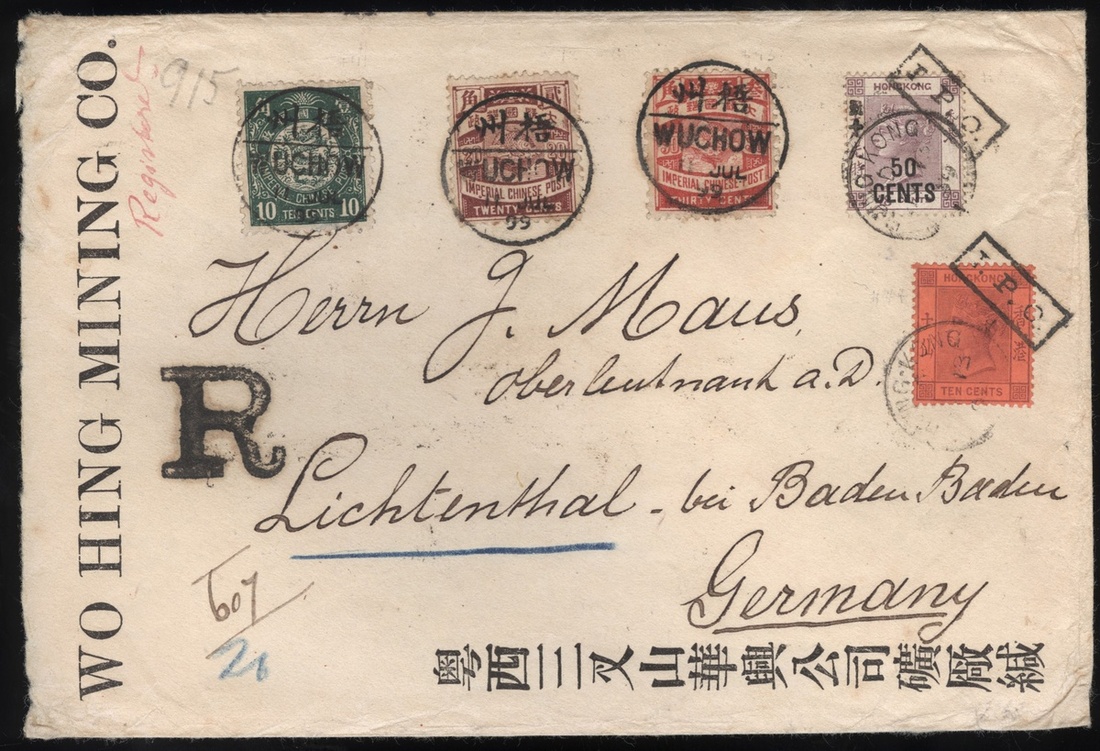 WO HING MINING CO.
Registered
915
10 TEN CENTS 10
梧州
WUCHOW
IMPERIAL CHINESE POST
TWENTY CENTS
梧州
WUCHOW
11 JUL
99
IMPERIAL CHINESE POST
THIRTY CENTS
梧州
WUCHOW
JUL
HONGKONG
50
CENTS
I.P.O.
HONGKONG
TEN CENTS
I.P.O.
Herrn J. Maus,
Oberleutnant a.D.
R
Lichtenthal - bei Baden Baden
Germany
607
20
粤西三叉山華興公司礦廠緘